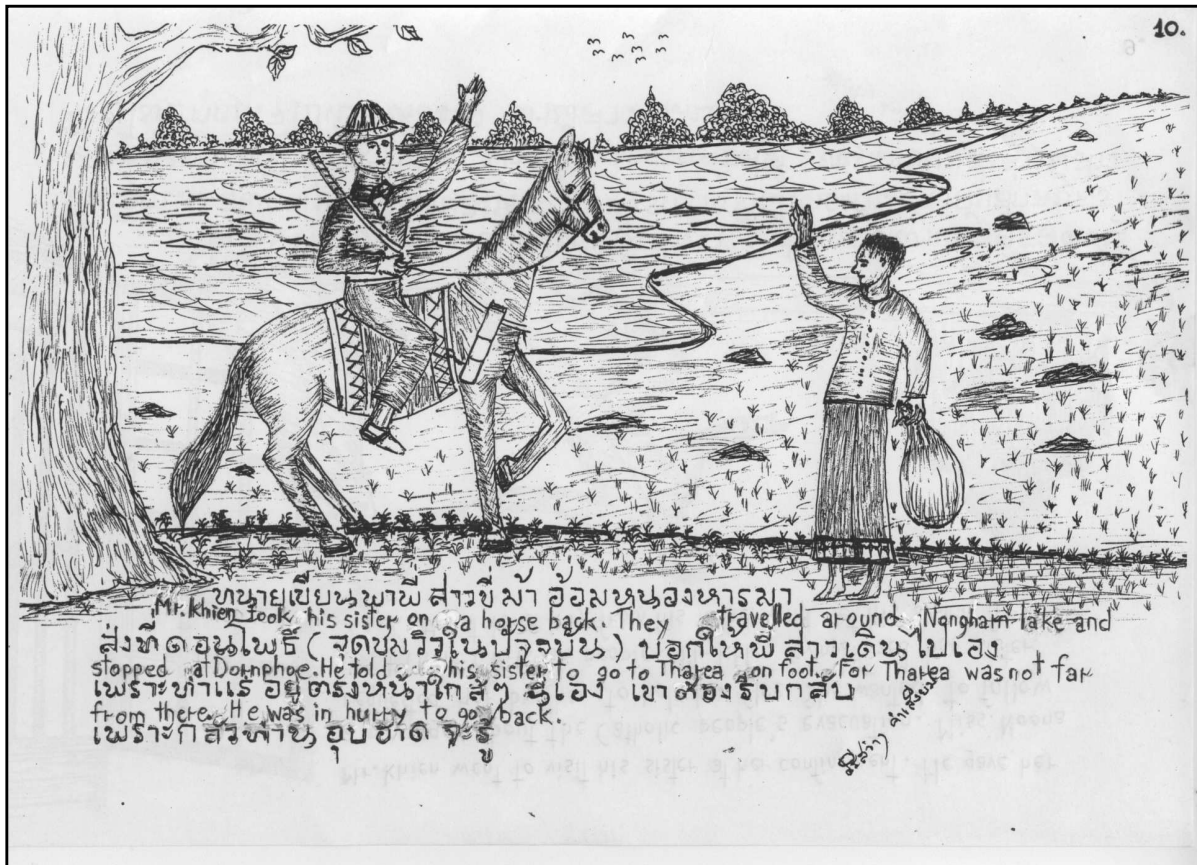 10.
ทนายเขียนพาพี่สาวขี่ม้า อ้อมหนองหารมา
Mr. Khien took his sister on a horse back. They travelled around Nongharn lake and
ส่งที่ดอนโพธิ์ (จุดชมวิวในปัจจุบัน) บอกให้พี่สาวเดินไปเอง
stopped at Dornphoe. He told his sister to go to Tharea on foot. For Tharea was not far
เพราะท่าแร่ อยู่ตรงหน้าใกล้ๆ นี้เอง เขาต้องรีบกลับ
from there. He was in hurry to go back.
เพราะกลัวท่านอุปฮาด จะรู้